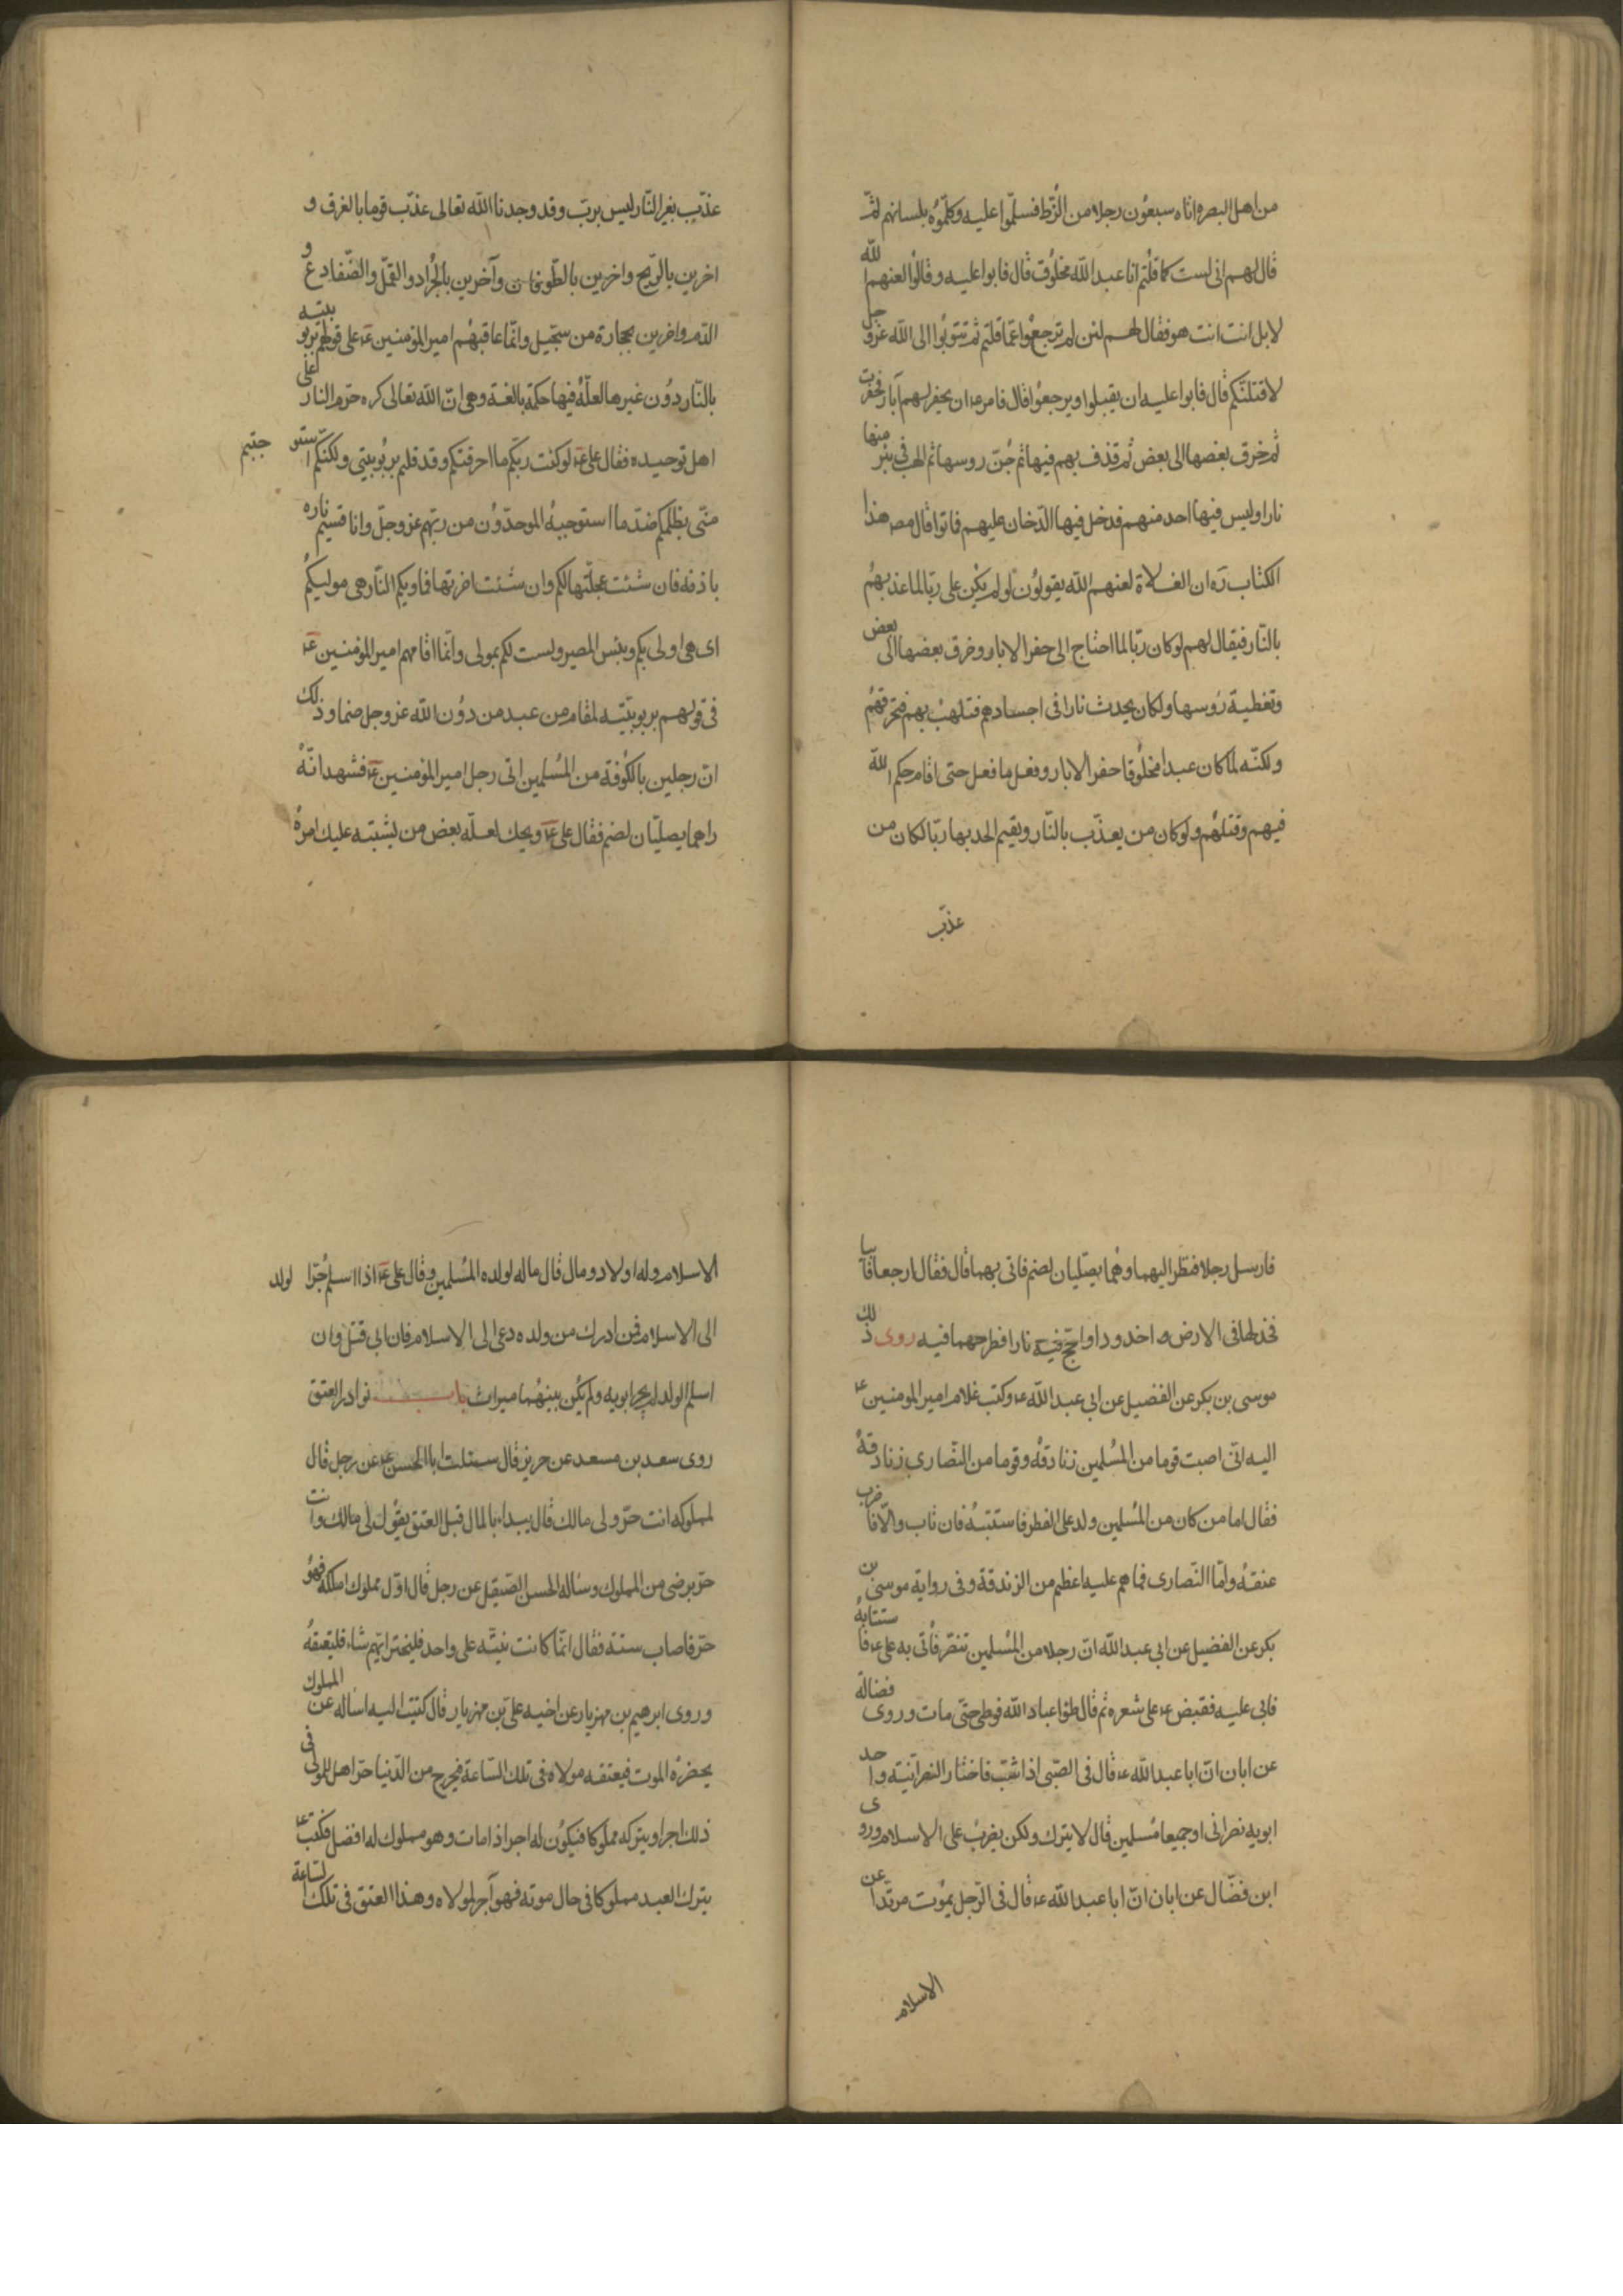 من اهل البصره اتاه سبعون رجلا من الزُّط فسلّموا عليه وكلّموُه بلسانهم ثمّ
قال لهم انى لست كما قلتم انا عبد الله مخلوق قال فابوا عليه وقالوا لعنهم الله
لا بل انت انت هو فقال لهم لئن لم ترجعوا عمّا قلتم ثم تتوبُوا الى الله عز وجل
لاقتلنّكم قال فابوا عليه ان يقبلوا ويرجعوا قال فامر ع ان يحفر لهم آبار فحفرت
ثم خرق بعضها الى بعض ثم قذف بهم فيها ثم جُنّ روسها ثم الهب فى بئر منها
نارا وليس فيها احد منهم فدخل فيها الدّخان عليهم فماتوا قال مص هذا
الكتاب ره ان الغلاة لعنهم الله يقولون لو لم يكن على ربّا لما عذبهُم
بالنّار فيقال لهم لو كان ربّا لما احتاج الى حفر الابار وخرق بعضها الى بعض
وتغطية رؤسها ولكان يحدث نارا فى اجسادهم فتلهب بهم فتحرقهُم
ولكنّه لما كان عبدا مخلوُقا حفر الابار وفعل ما فعل حتى اقام حكم الله
فيهم وقتلهُم ولو كان من يعذّب بالنّار ويقيم الحد بها ربّا لكان من
عذّب
عذّب بغير النّار ليس بربّ وقد وجدنا الله تعالى عذّب قوما بالغرق و
اخرين بالرّيح واخرين بالطّوفان وآخرين بالجُراد والقمّل والضّفادع و
الدّم واخرين بحجارة من سجّيل وانّما عاقبهُم امير المؤمنين ع على قولهم بربوبيته
بالنّار دوُن غيرها لعلّة فيها حكمة بالغة وهى انّ الله تعالى كره حرّم النار على
اهل توحيده فقال على ع لو كنت ربّكم ما احرقتكم وقد قلتم بربُوبيتى ولكنّكم استو جبتم
منّى بظلمكم ضدّ ما استوجبهُ الموحدّوُن من ربّهم عز وجلّ وانا قسيم ناره
باذنه فان شئت عجلّتها لكم وان شئت اخرتها فماويكم النّار هى موليكُم
اى هى اولى بكم وبئس المصير ولست لكم بمولى وانّما اقامهم امير المؤمنين ع
فى قولهم بربوبيّته مقام من عبد من دوُن الله عز وجل صنما وذلك
انّ رجلين بالكُوفة من المسُلمين اتى رجل امير المؤمنين ع فشهد انّهُ
راهما يصليّان لصنم فقال على ع ويحك لعلّه بعض من يشبّته عليك امرهُ
فارسل رجلا فنظر اليهما وهُما يصلّيان لصنم فاتى بهما قال فقال ارجعا فابيا
فخد لهما فى الارض اخدودا واجّج فيه نارا فطرحهما فيه روى ذلك
موسى بن بكر عن الفضيل عن ابى عبد الله ع وكتب غلام امير المومنين ع
اليه انّى اصبت قوما من المُسلمين زنادقة وقوما من النّصارى زنادقةُ
فقال اما من كان من المُسلمين ولد على الفطر فاستتبهُ فان تاب والّا فاضرب
عنقهُ وامّا النّصارى فما هم عليه اعظم من الزندقة وفى رواية موسى بن
بكر عن الفضيل عن ابى عبد الله انّ رجلا من المُسلمين تنصّر فُاتى به على ع فاستتابهُ
فابى عليه فقبض ع على شعره ثم قال طؤا عباد الله فوطى حتّى مات وروى فضالة
عن ابان انّ ابا عبد الله ع قال فى الصّبى اذا شبّ فاختار النصرانيّة واحد
ابويه نصرانى او جميعا مُسلمين قال لا يترك ولكن يضربُ على الاسلام وروى
ابن فضّال عن ابان انّ ابا عبد الله ع قال فى الرّجل يموُت مرتدّا عن
الاسلام
الاسلام وله اولاد ومال قال ماله لولده المُسلمين وقال على ع اذا اسلم جُرّا لولد
الى الاسلام فمن ادرك من ولده دعى الى الاسلام فان ابى قتل وان
اسلم الولد لم يجرا بويه ولم يكُن بينهُما ميراث باب نوادر العتق
روى سعد بن مسعد عن حريز قال سئلت ابا الحسن ع عن رجل قال
لمملوكه انت حرّ ولى مالك قال يبداء بالمال قبل العتق يقوُل لى مالك وانت
حرّ برضى من المملوك وساله الحسن الصّيقل عن رجل قال اوّل مملوك املكه فهوُ
حرّ فاصاب ستة فقال انّما كانت نيّته على واحد فليختر ايّهم شاء فليعتقهُ
وروى ابرهيم بن مهزيار عن اخيه علىّ بن مهزيار قال كتبت اليه اساله عن المملوك
يحضرهُ الموت فيعتقه مولاه فى تلك السّاعة فيخرج من الدّنيا حرّا هل للمولى فى
ذلك اجر او يتركه مملُوكا فيكوُن له اجر اذا مات وهو مملوك له افضل فكتب ع
يترك العبد مملوكا فى حال موته فهو آجر لمولاه وهذا العتق فى تلك الساعة